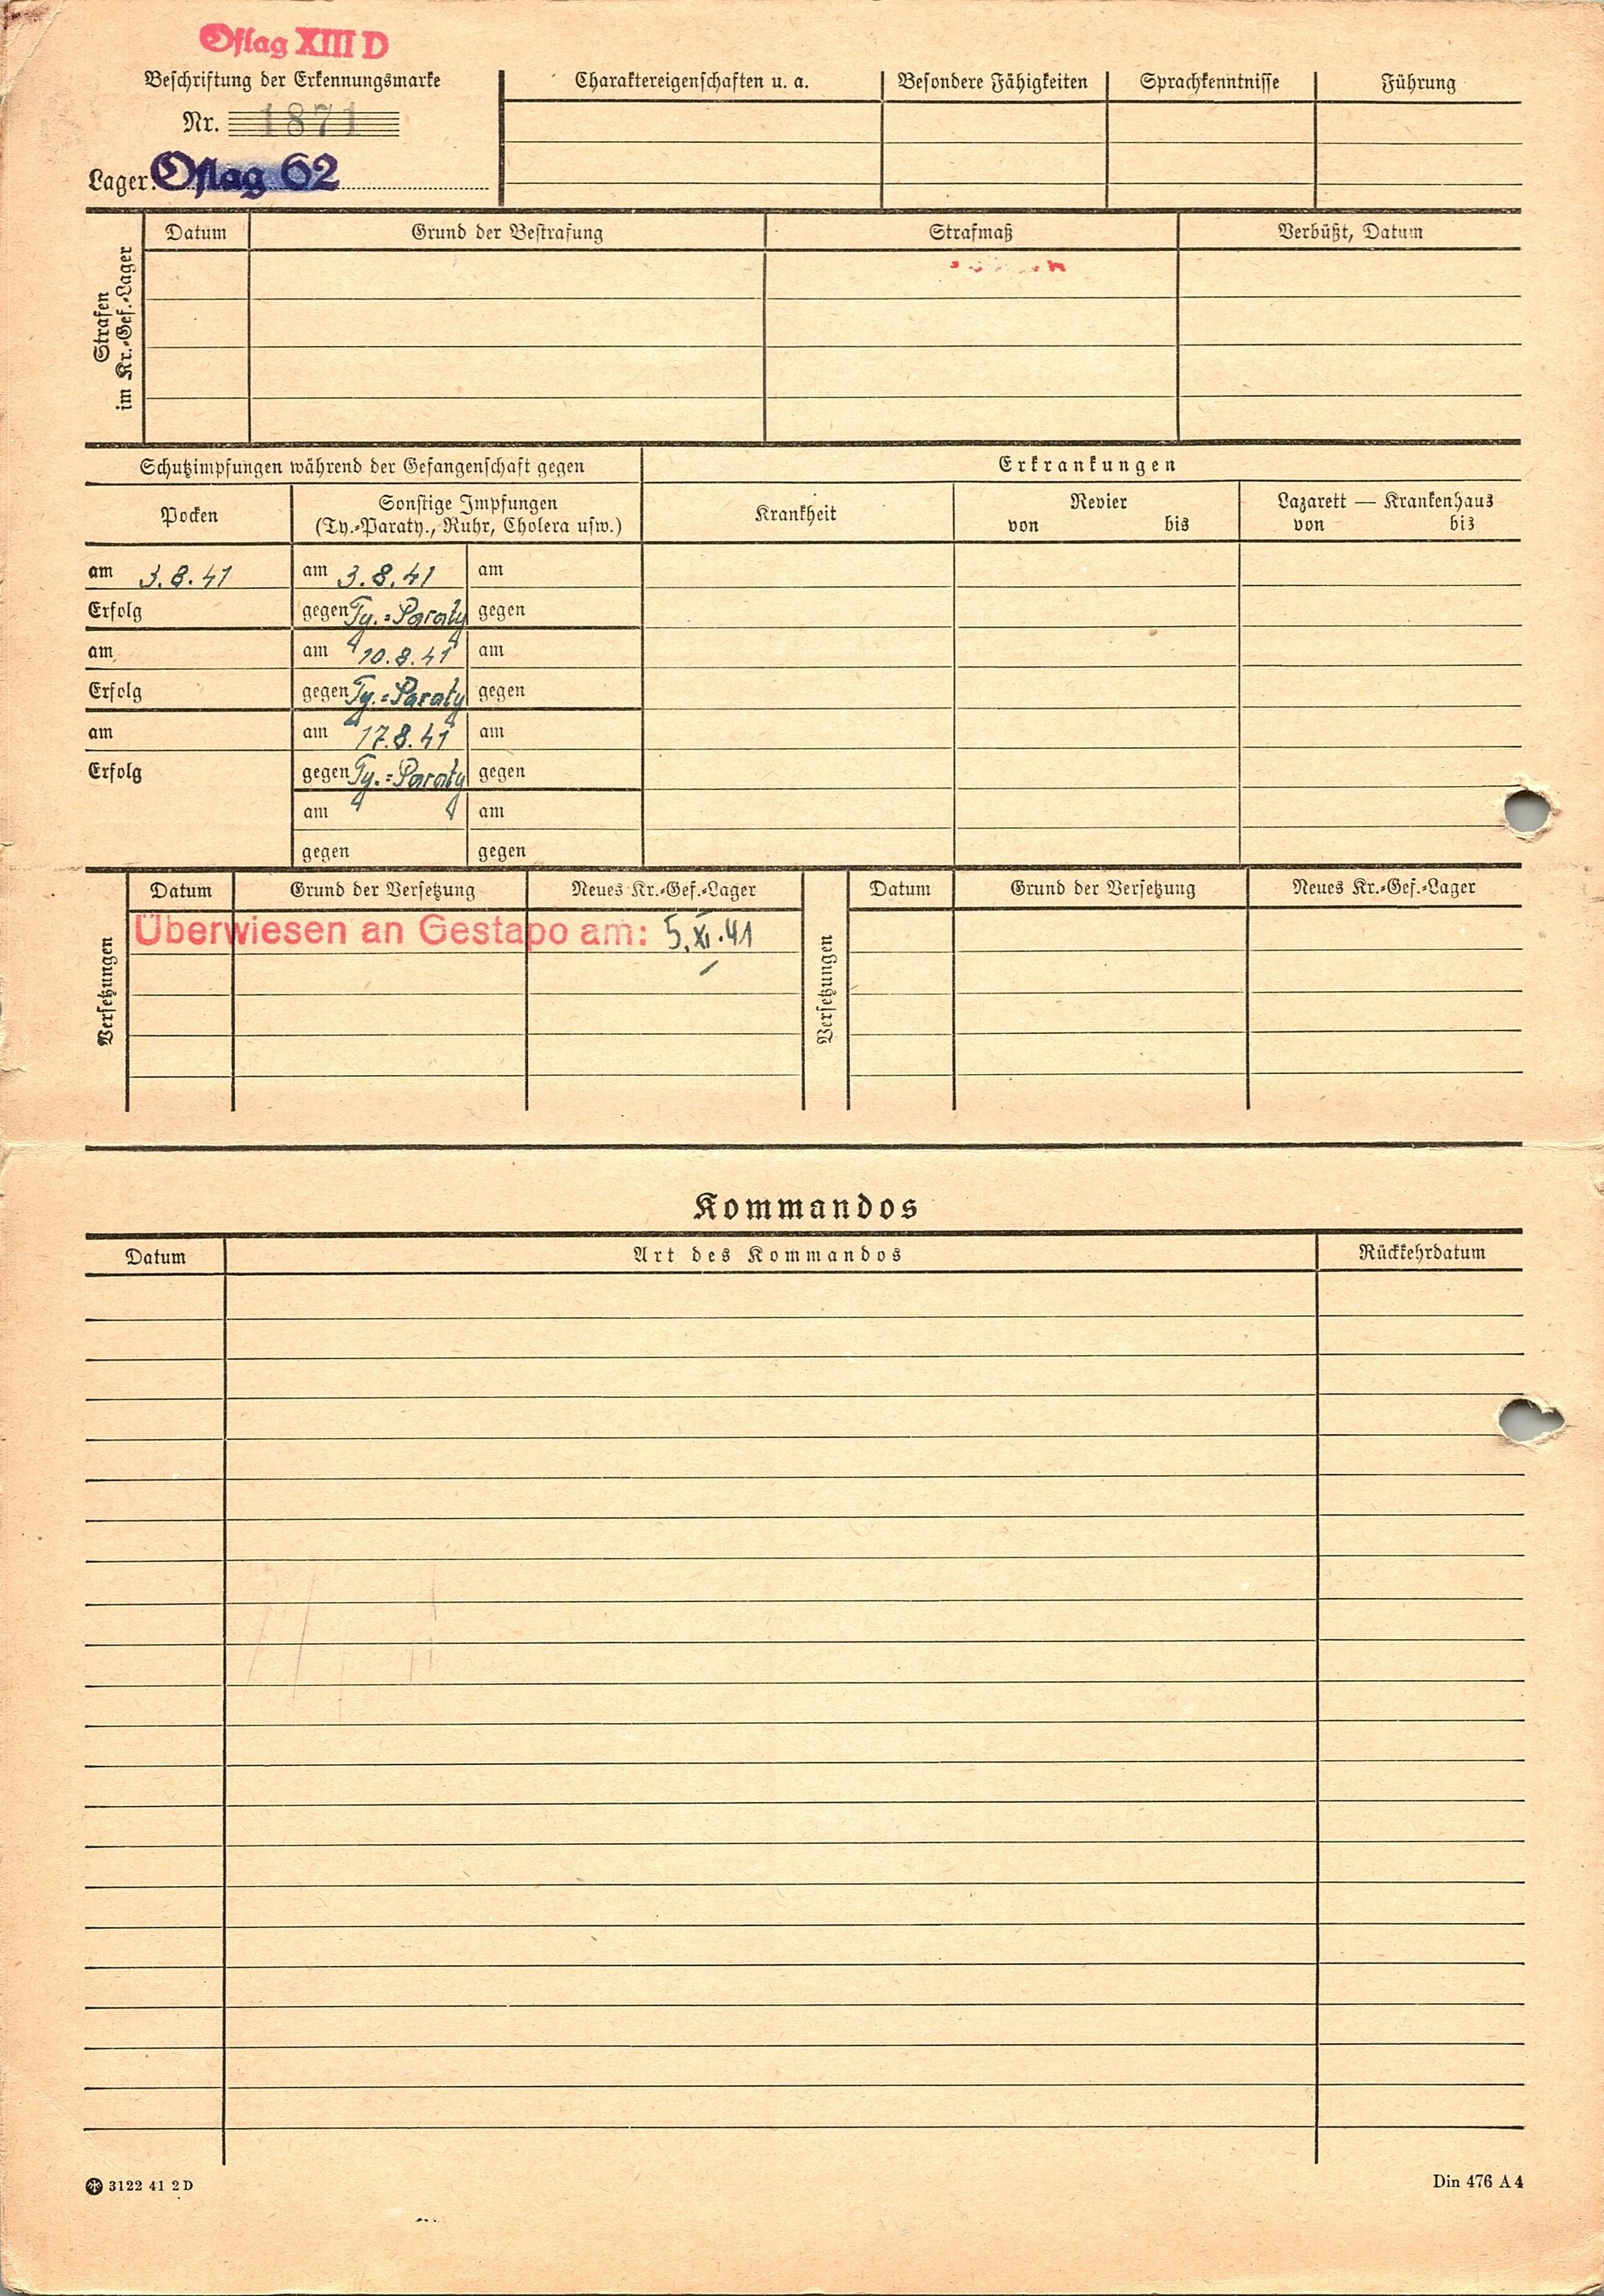 Oflag XIII D
Beschriftung der Erkennungsmarke
Nr. 1871
Lager: Oflag 62
Charaktereigenschaften u. a.
Besondere Fähigkeiten
Sprachkenntnisse
Führung
Strafen
im Kr.-Gef.-Lager
Datum
Grund der Bestrafung
Strafmaß
Verbüßt, Datum
Schutzimpfungen während der Gefangenschaft gegen
Erkrankungen
Pocken
Sonstige Impfungen
(Ty.-Paraty., Ruhr, Cholera usw.)
Krankheit
Revier
von bis
Lazarett — Krankenhaus
von bis
am 3.8.41 am 3.8.41 am
Erfolg gegen Ty.=Paraty gegen
am am 10.8.41 am
Erfolg gegen Ty.=Paraty gegen
am am 17.8.41 am
Erfolg gegen Ty.=Paraty gegen
am am
gegen gegen
Versetzungen
Datum
Grund der Versetzung
Neues Kr.-Gef.-Lager
Überwiesen an Gestapo am: 5.XI.41
Versetzungen
Datum
Grund der Versetzung
Neues Kr.-Gef.-Lager
Kommandos
Datum
Art des Kommandos
Rückkehrdatum
3122 41 2 D
Din 476 A 4